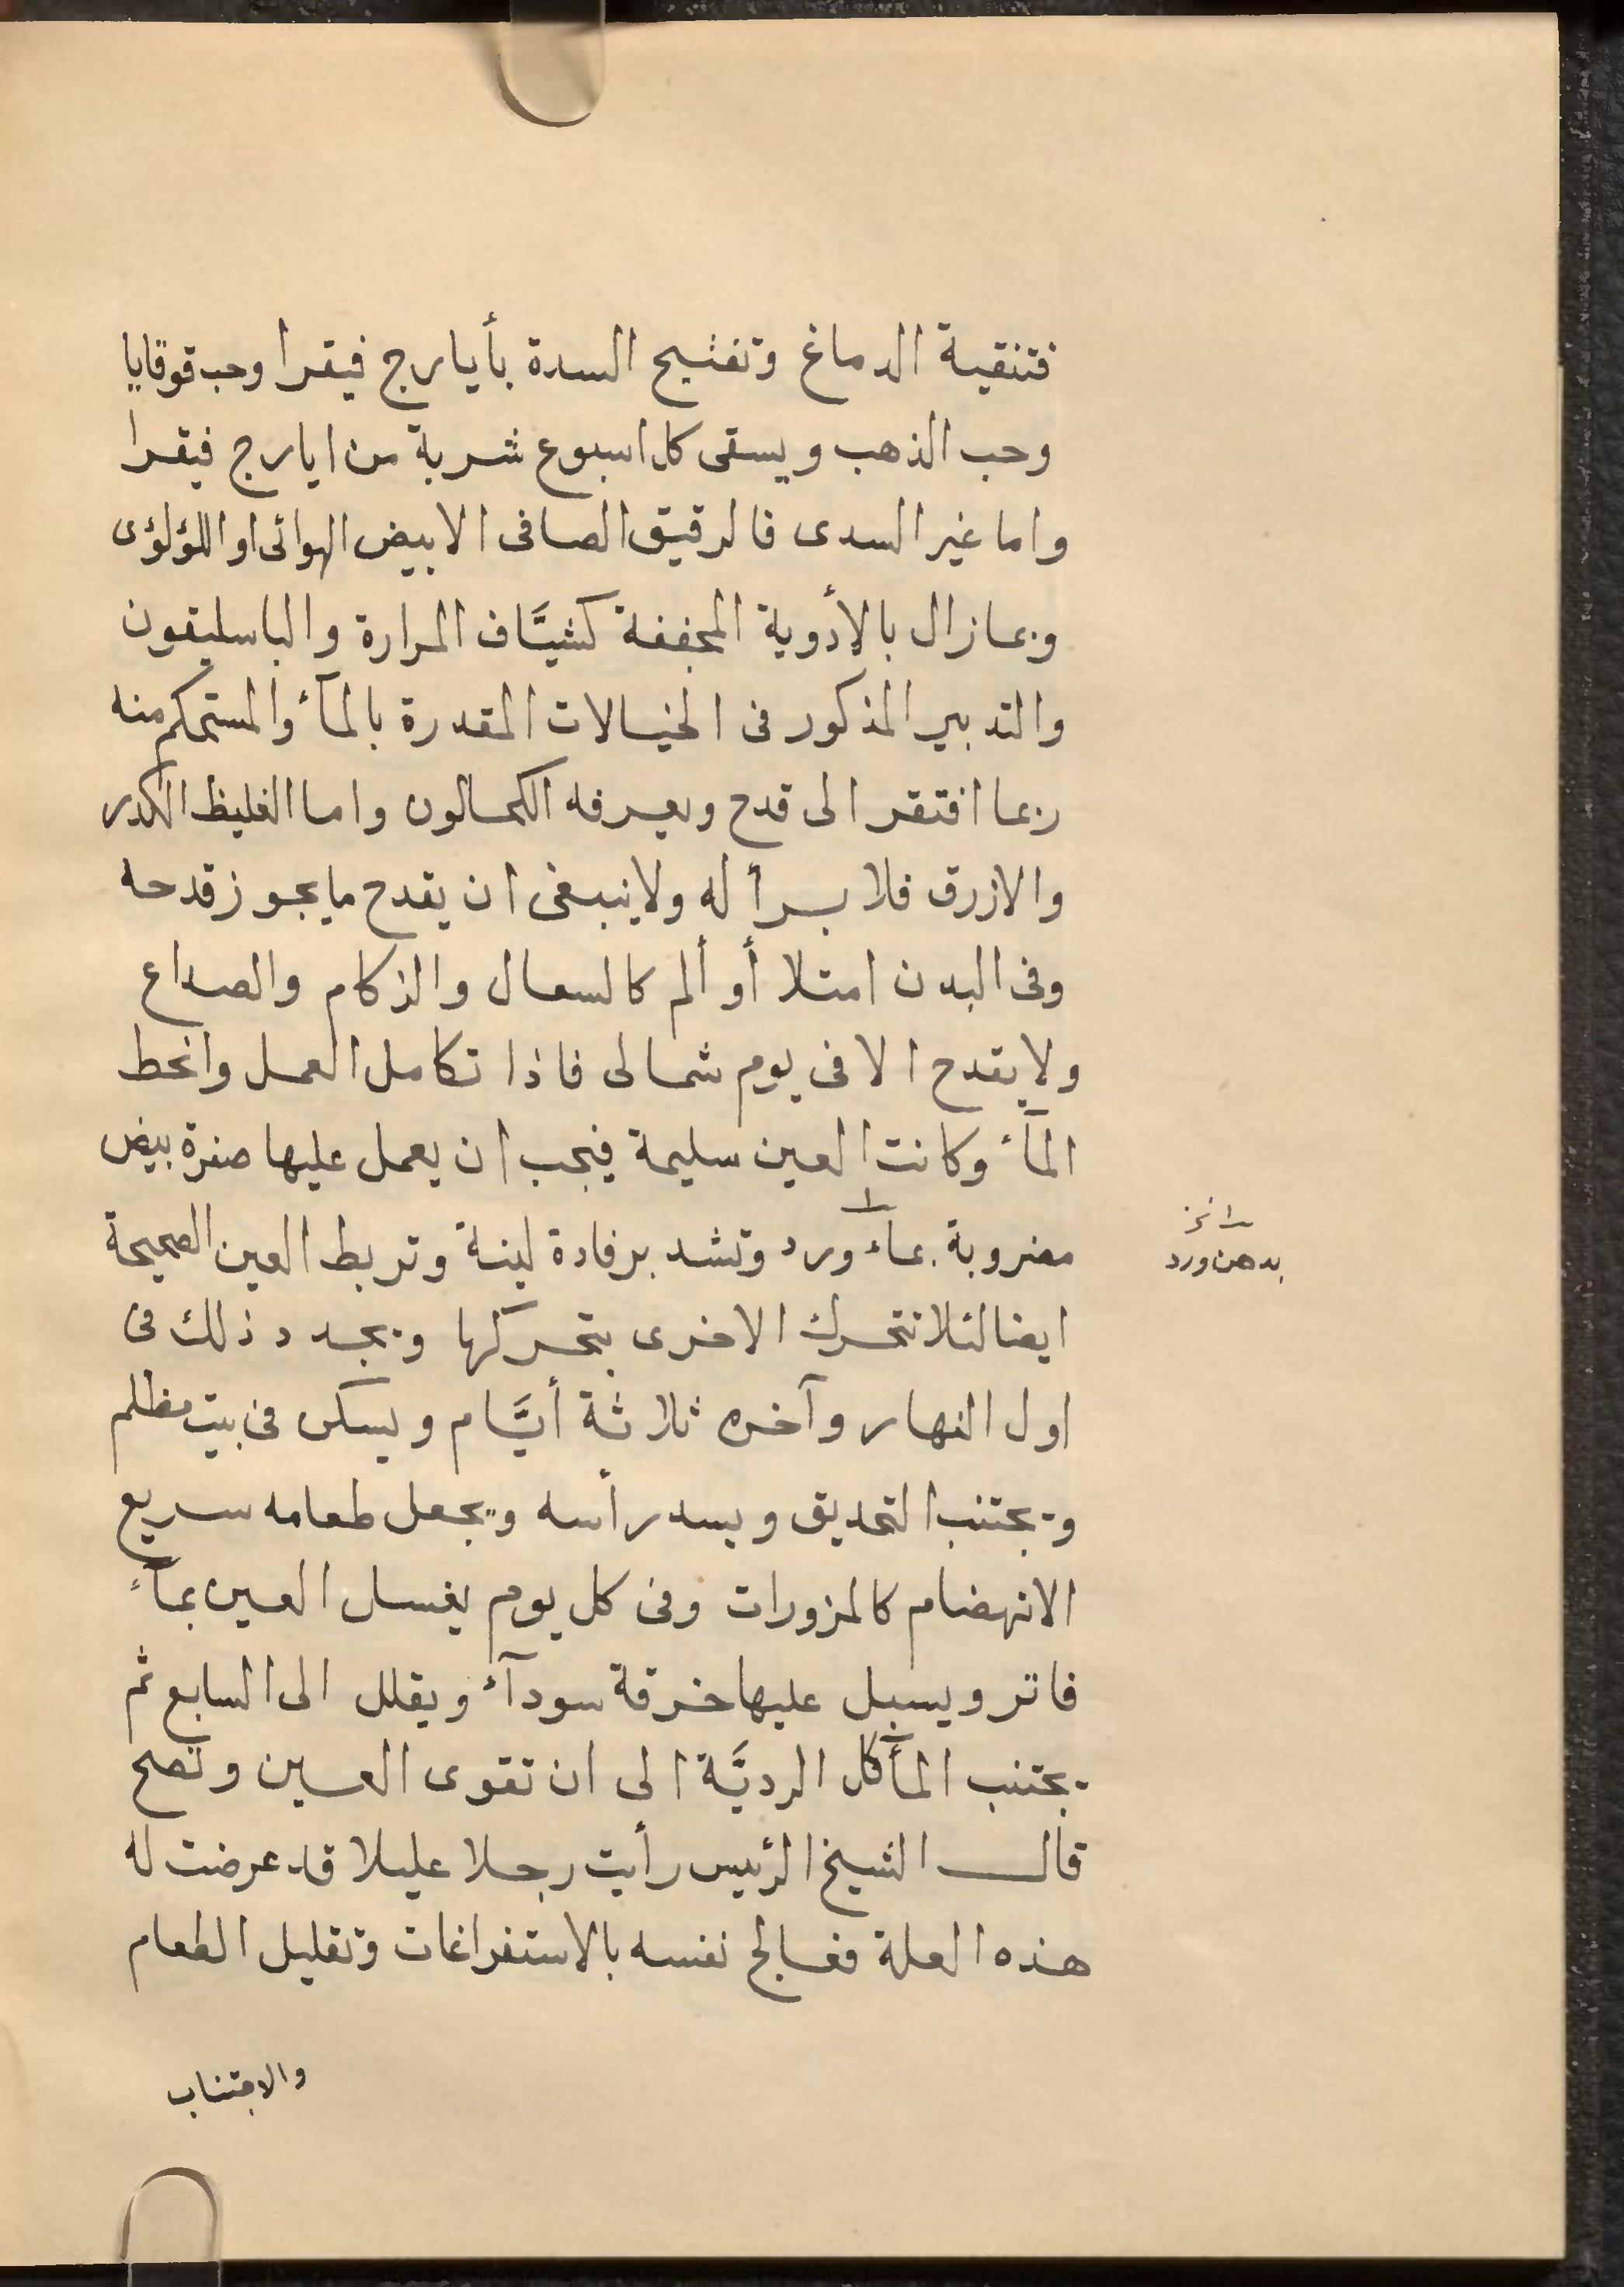 فتنقية الدماغ وتفتيح السدة بأيارج فيقرا وحب قوقايا
وحب الذهب ويسقى كل اسبوع شربة من ايارج فيقرا
واما غير السدى فالرقيق الصافى الابيض الهوائى او اللؤلؤى
وربما زال بالأدوية المجففة كشيَّاف المرارة والباسليقون
والتدبير المذكور فى الخيالات المقدرة بالمآء والمستحكم منه
ربما افتقر الى قدح ويعرفه الكحالون واما الغليظ الكدر
والازرق فلا برأ له ولا ينبغى ان يقدح ما يجوز قدحه
وفى البدن امتلا أو ألم كالسعال والزكام والصداع
ولا يقدح الا فى يوم شمالى فاذا تكامل العمل وانحط
المآء وكانت العين سليمة فيجب ان يعمل عليها صفرة بيض
مضروبة بمآء ورد وتشد برفادة لينة وتربط العين الصحيحة
بدهن ورد
ايضا لئلا تتحرك الاخرى بتحركها ويجدد ذلك فى
اول النهار وآخره ثلاثة أيَّام ويسكن فى بيت مظلم
ويجتنب التحديق ويسد رأسه ويجعل طعامه سريع
الانهضام كالمزورات وفى كل يوم يغسل العين بمآء
فاتر ويسبل عليها خرقة سودآء ويقلل الى السابع ثم
يجتنب المأكل الرديَّة الى ان تقوى العين وتصح
قال الشيخ الرئيس رأيت رجلا عليلا قد عرضت له
هذه العلة فعالج نفسه بالاستفراغات وتقليل الطعام
والاجتناب